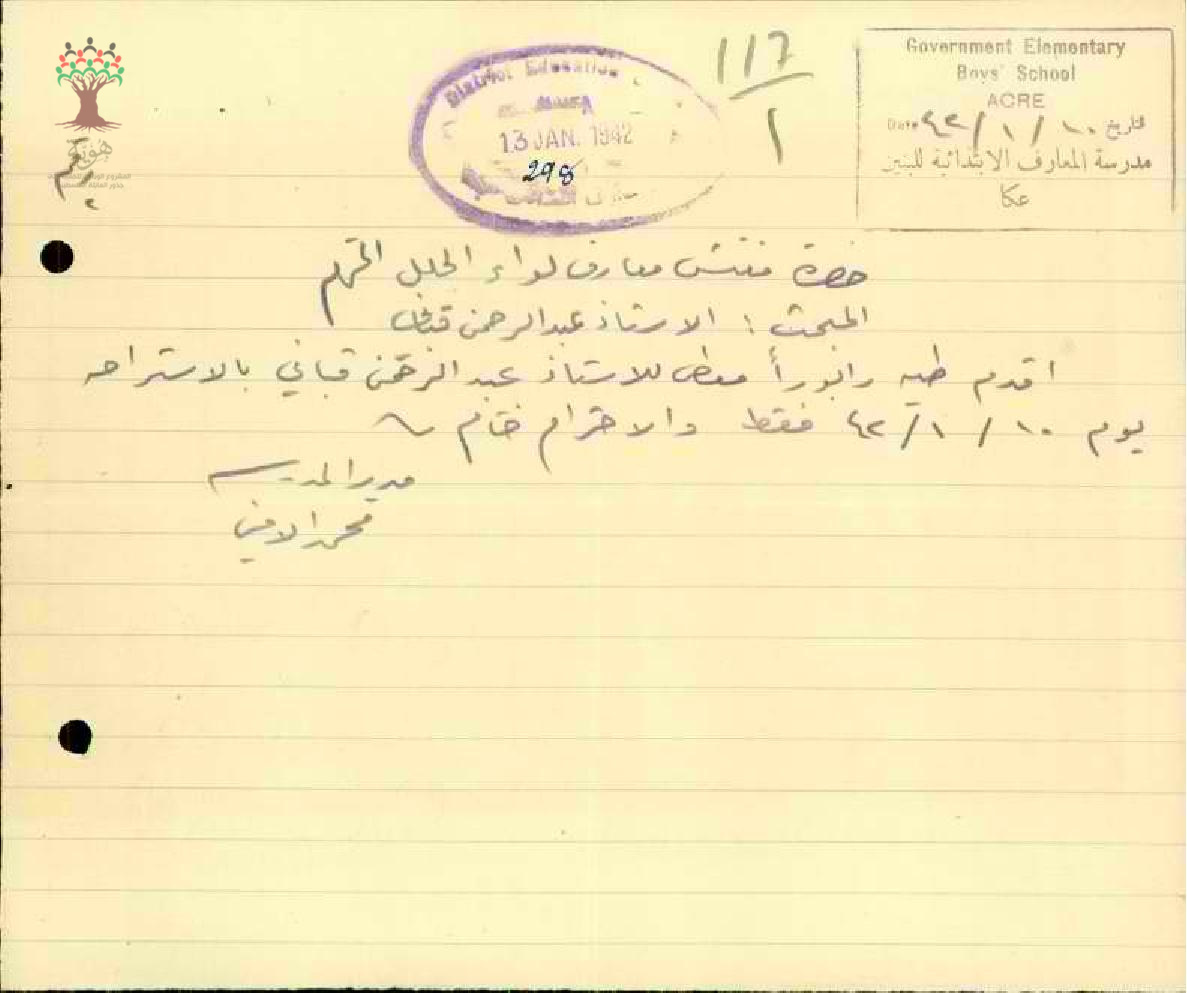 Government Elementary
Boys' School
ACRE
Date ٤٢/١/١٠ تاريخ
مدرسة المعارف الابتدائية للبنين
عكا
117
1
District Education
13 JAN. 1942
298
هويتي
حضرة مفتش معارف لواء الجليل المحترم
المبحث : الاستاذ عبد الرحمن قباني
اقدم طيه رابوراً معطى للاستاذ عبد الرحمن قباني بالاستراحه
يوم ١٠/١/٤٢ فقط والاحترام ختام
مدير المدرسه
محمد الامين